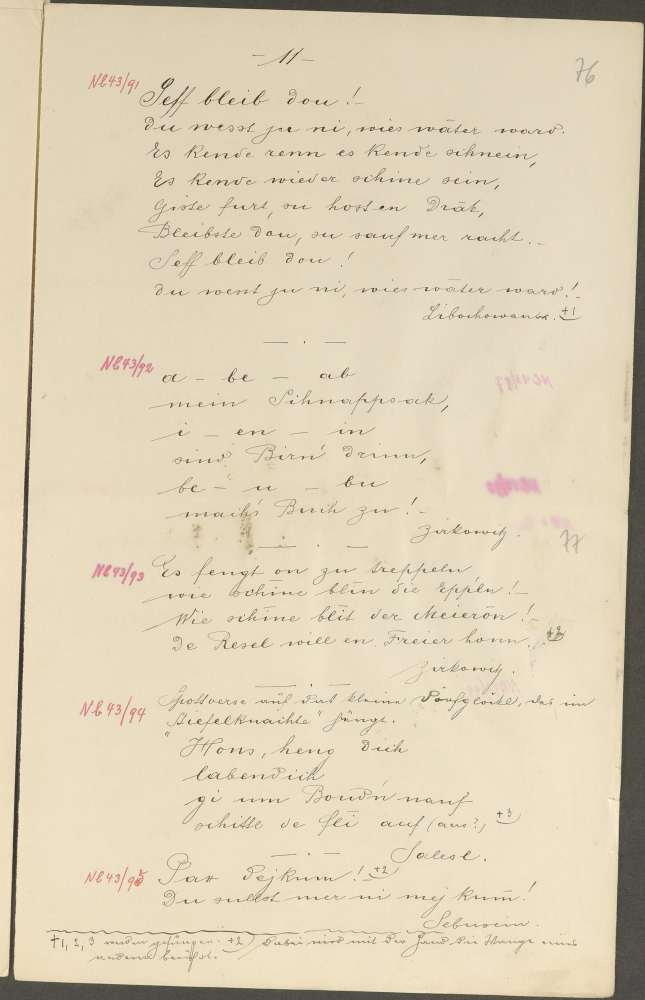 - 11 -
76
Nb 43/91 Seff bleib dou! -
Du wesst ju ni, wies wäter ward.
Es kende renn es kende schnein,
Es kende wieder schine sein,
Giste furt, su host en Dräk,
Bleibste dou, su sauf mer racht. -
Seff bleib dou!
du wesst ju ni, wies wäter ward!
Libochowan +1
Nb 43/92 a - be - ab
mein Schnappsak,
i - en - in
sind Birn drinn,
be - u - bu
mach's Buch zu! -
Zirkowitz.
77
Nb 43/93 Es fengt on zu treppeln
wie schine blin die Eppeln! -
Wie schine blit der Meieron!
De Resel will en Freier honn. +2
Zirkowitz.
Nb 43/94 Spottverse auf das kleine Dorfglöckel, das im
"Stiefelknachte" hängt.
"Hons, heng dich
labendich
gi um Boud'n nauf
schitte de fli auf (aus?) +3
Salesl.
Nb 43/95 Par Pejkum! +2
Du sullst mer ni mej kum!
Sebusein.
+1, 2, 3 werden gesungen. +2) Dabei wird mit der Hand die Wange eines
andern berührt.